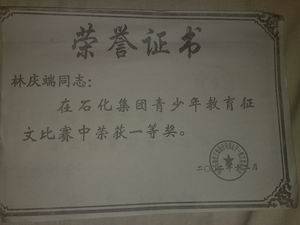 荣誉证书
林庆端同志：
在石化集团青少年教育征
文比赛中荣获一等奖。